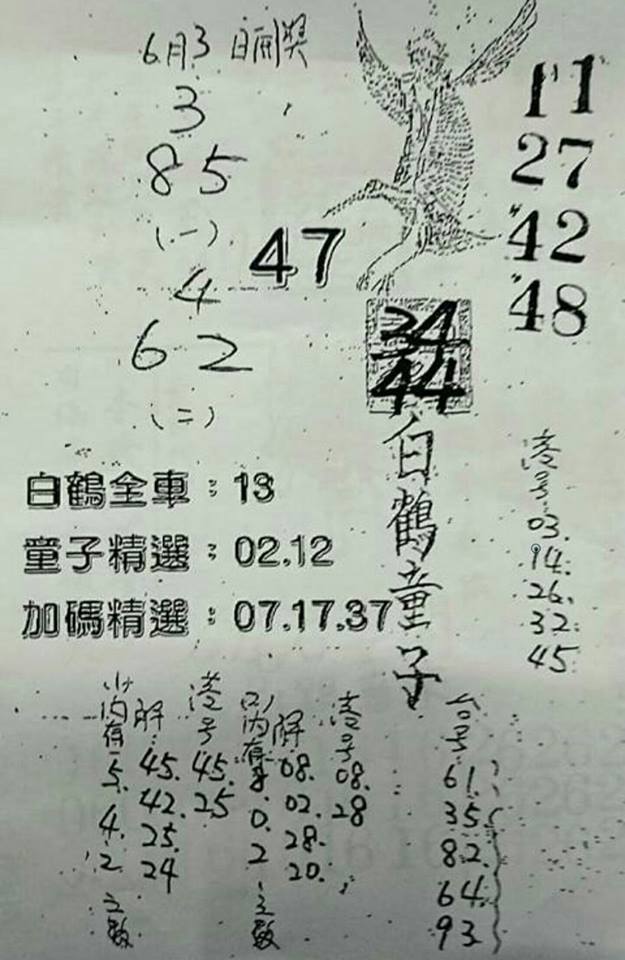 6月3日開獎
3
85
(一)
4
62
(二)
47
11
27
42
48
34
44
白鶴童子
白鶴全車：13
童子精選：02.12
加碼精選：07.17.37
港号
03.
14.
26.
32.
45
小内有
5.
4.
2
之數
解
45.
42.
25.
24
港号
45.
25
内有
8
0.
2
之數
解
08.
02.
28.
20.
港号
08.
28
台号
61.
35.
82.
64.
93